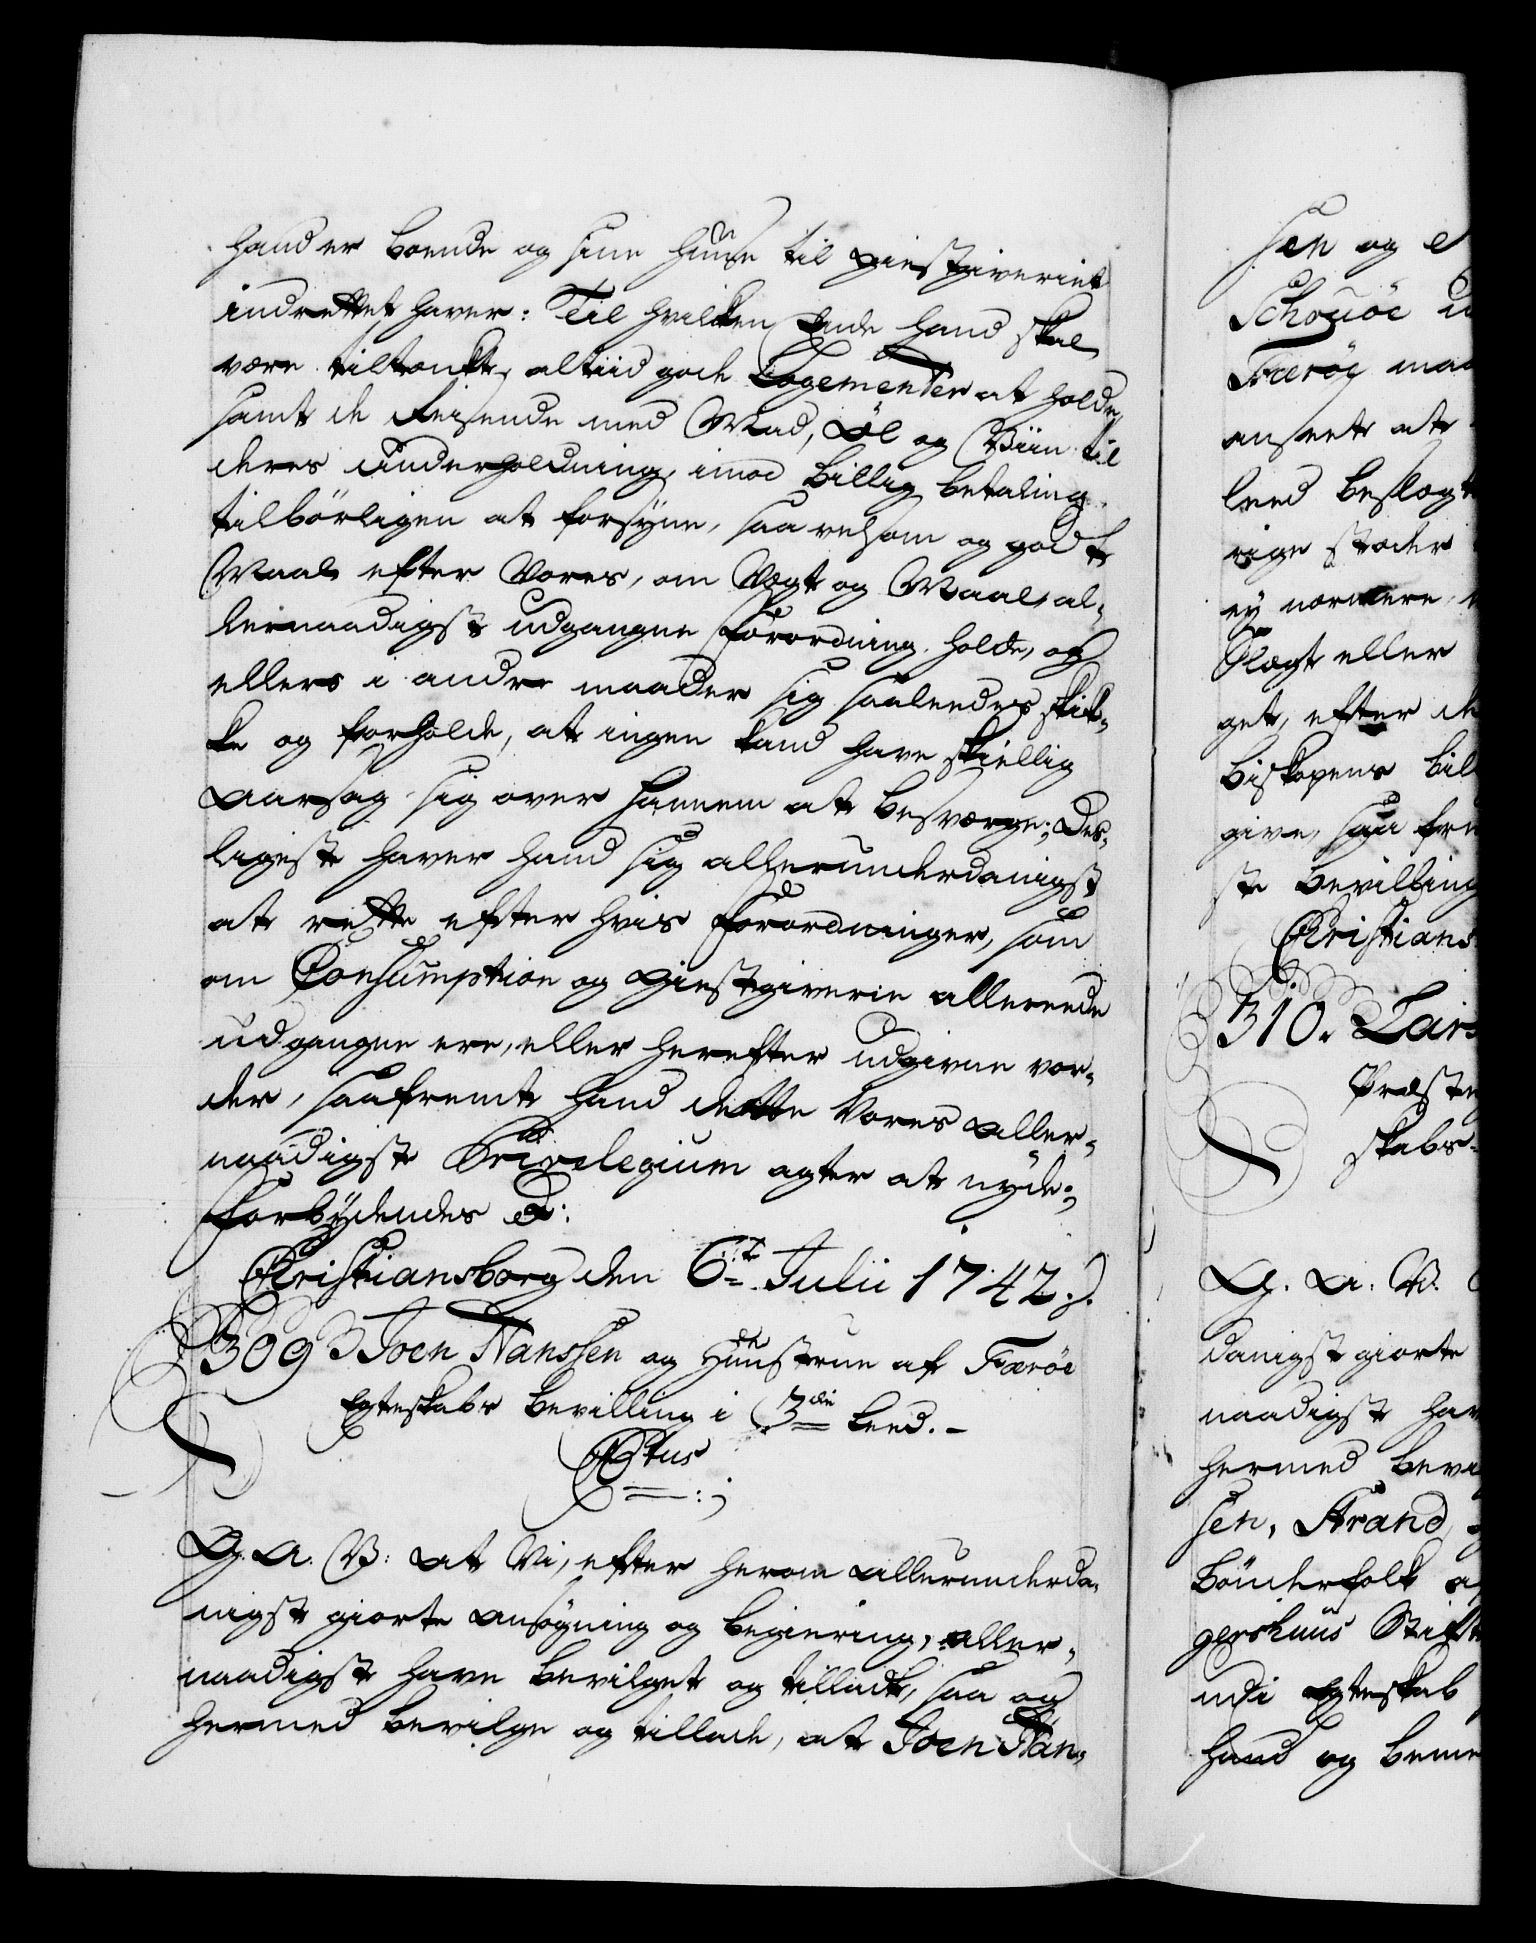 hand er boende og sine Huuse til Giestgiveriet
indrettet haver: Til hvilken Ende hand skal
være tiltænkt, altiid gode Logementer at holde,
samt de Reisende med Mad, Øl og Viin til
deres Underholdning, imod billig betaling
tilbörligen at forsyne, saa velsom og godt
Maal efter Vores, om Vegt og Maal, al-
lernaadigst udgangne Forordning holde, og
ellers i andre maader sig saaledes skik-
ke og forholde, at ingen kand have skiellig
Aarsag sig over hannem at besverge; Des-
ligeste haver hand sig allerunderdanigst
at rette efter hvis Forordninger, som
om Consumption og Giestgiverie allerede
udgangne ere, eller herefter udgivne vor-
der, saafremt hand dette Vores Aller-
naadigste Privilegium agter at nyde;
Forbydendes &:
Christiansborg den 6te Julii 1742.
309 Joen Hanssen og Huustrue af Færöe
Egteskabs bevilling i 3die Leed.
CStus
G. A. V: At Vi, efter herom allerunderda-
nigst giorte Ansögning og begiering, aller-
naadigst have bevilget og tilladt, saa og
hermed bevilge og tillade, at Joen Han-
sen og
Schouöe
Færöe maa
anseet at
leed beslegt
rige steder
ey nærmere
Slegt eller
get, efter de
biskopens
give, saa
ste bevilling
Christians
310. Lars
Præste
skabs-
G. A. V.
danigst giorte
naadigst hav
hermed bevi
sen, Strand,
bönderfolk
gershuus Stift
udi Egteskab
hand og